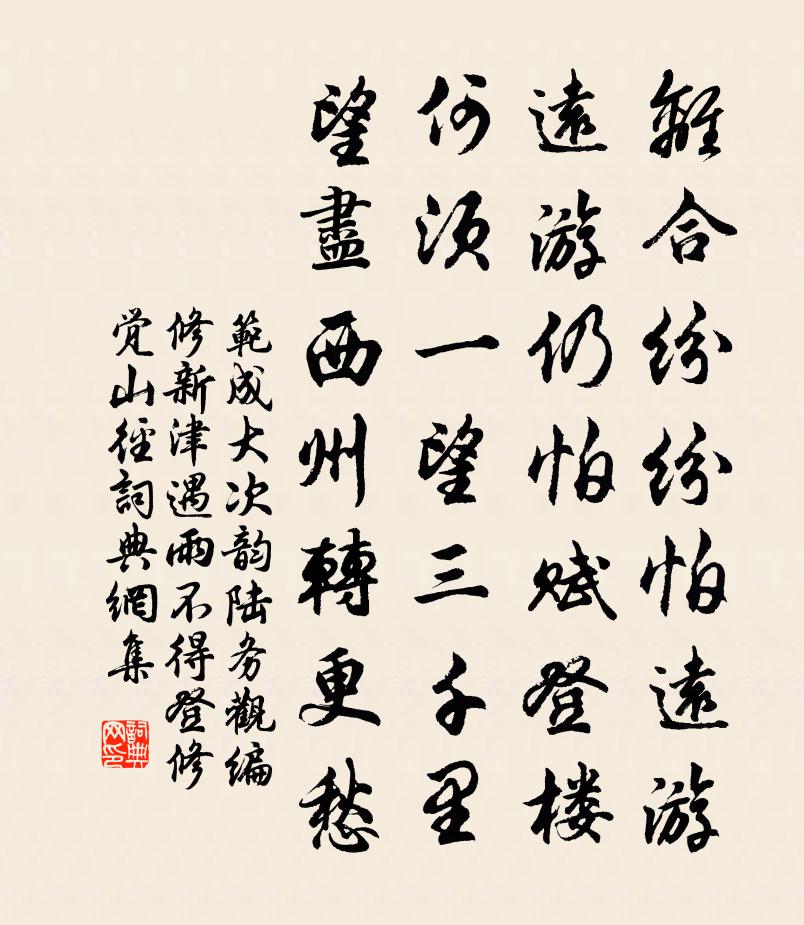 離合紛紛怕遠游
遠游仍怕賦登樓
何須一望三千里
望盡西州轉更愁
範成大次韵陸务觀编
修新津遇雨不得登修
覚山徑詞典網集
詞典网印